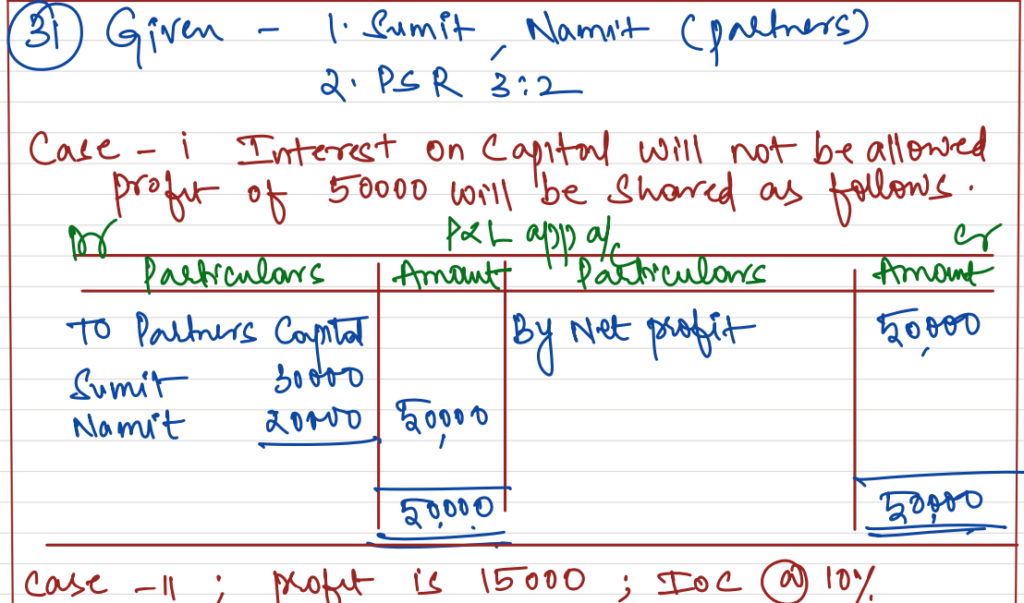 31 Given - 1. Sumit, Namit (partners)
2. PSR 3:2
Case - i Interest on Capital will not be allowed
profit of 50000 will be shared as follows.
Dr P&L app a/c Cr
Particulars Amount Particulars Amount
To Partners Capital By Net profit 50,000
Sumit 30000
Namit 20000 50,000
50,000 50,000
Case - II ; profit is 15000 ; IOC @ 10%